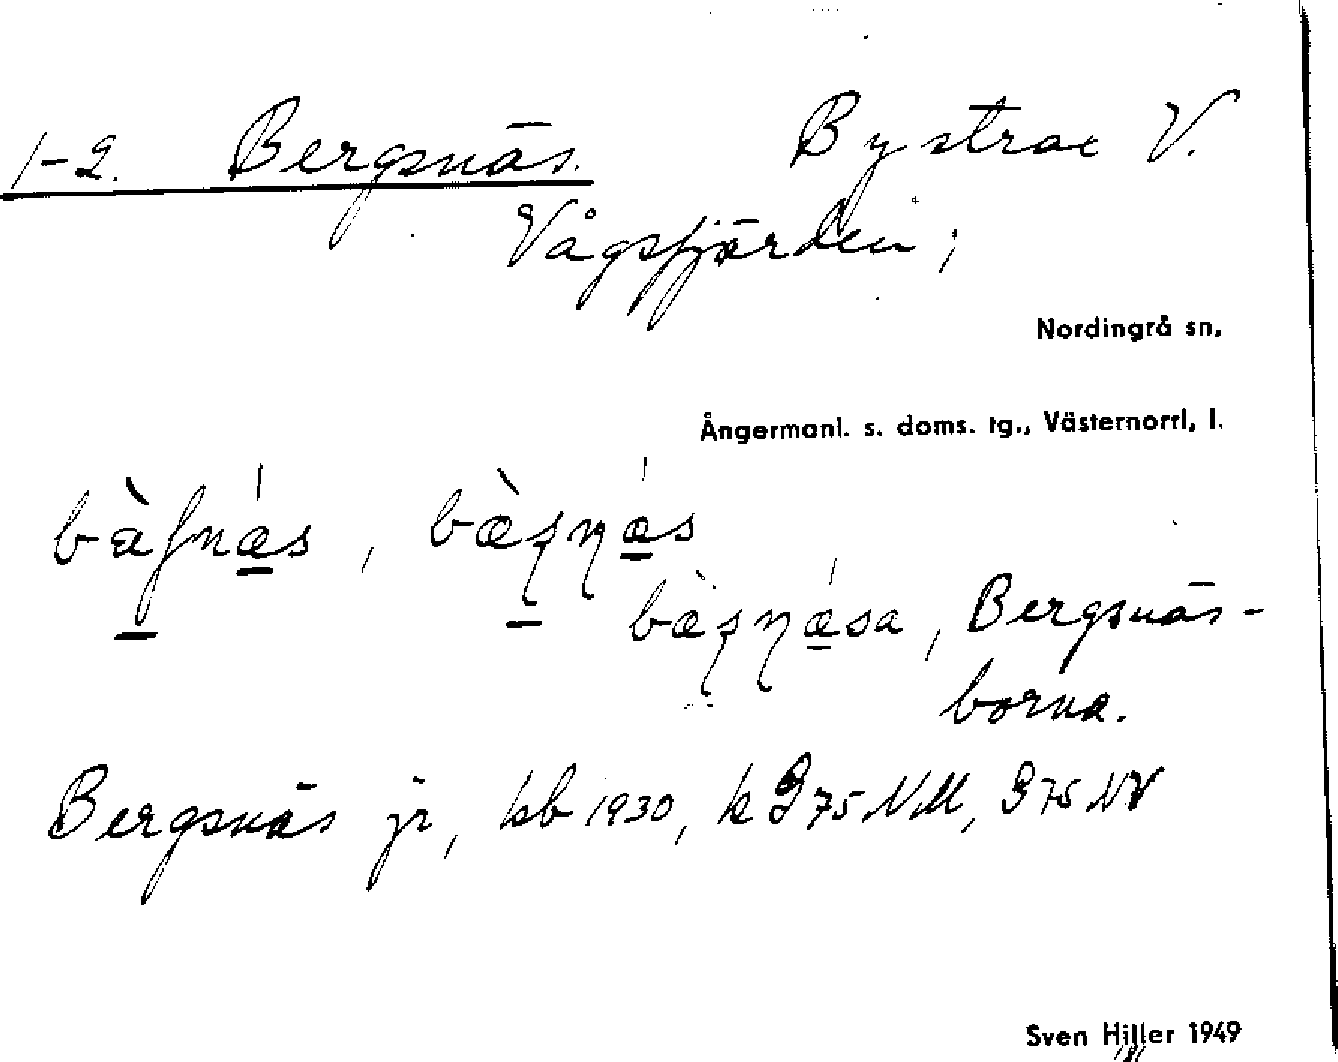 1-2. Bergsnäs. Bystrac V.
Vågsfjärden;
Nordingrå sn,
Ångermanl. s. doms. tg., Västernorrl, l.
bæ̀ʃnǽs, bæ̀ʂɳǽs
bæ̀ʂɳǽsa, Bergsnäs-
borna.
Bergsnäs jr, kb 1930, k 975 NM, 975 NV
Sven Hiller 1949